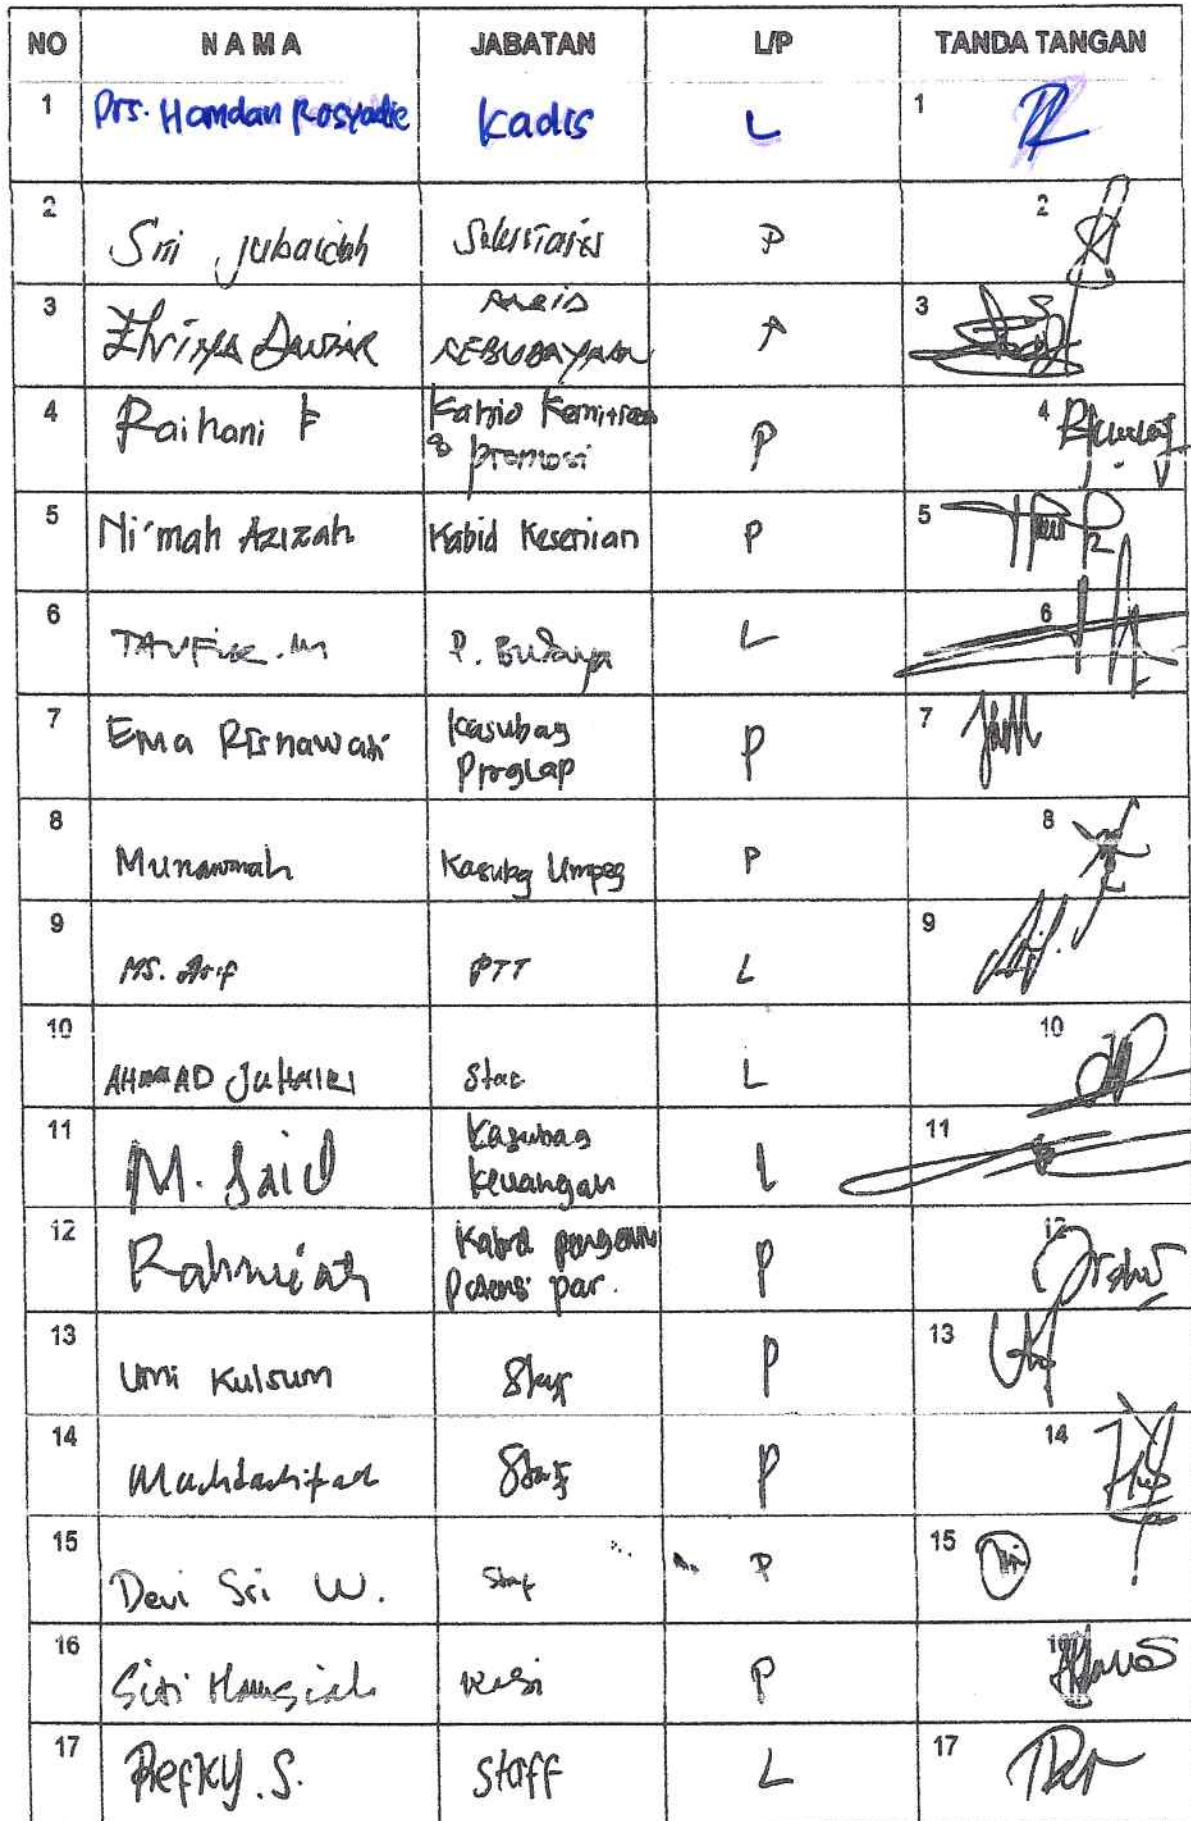 NO NAMA JABATAN L/P TANDA TANGAN
1 Drs. Hamdan Rosyadie Kadis L 1
2 Sri Jubaidah P 2
3 3
KEBUDAYAAN
4 Raihani F Kabid Kemitraan P 4
& promosi
5 Ni'mah Azizah Kabid Kesenian P 5
6 TAUFIK.M P. Budaya L 6
7 Ema Risnawati Kasubag P 7
Proglap
8 Munawarah Kasubag Umpeg P 8
9 MS. Arif PTT L 9
10 AHMAD L 10
11 M. Said Kasubag L 11
Keuangan
12 Rahmiah Kabid P 12
Potensi par.
13 Umi Kulsum Staf P 13
14 Staf P 14
15 Devi Sri W. Staf P 15
16 Siti Kasi P 16
17 Refky.S. Staff L 17